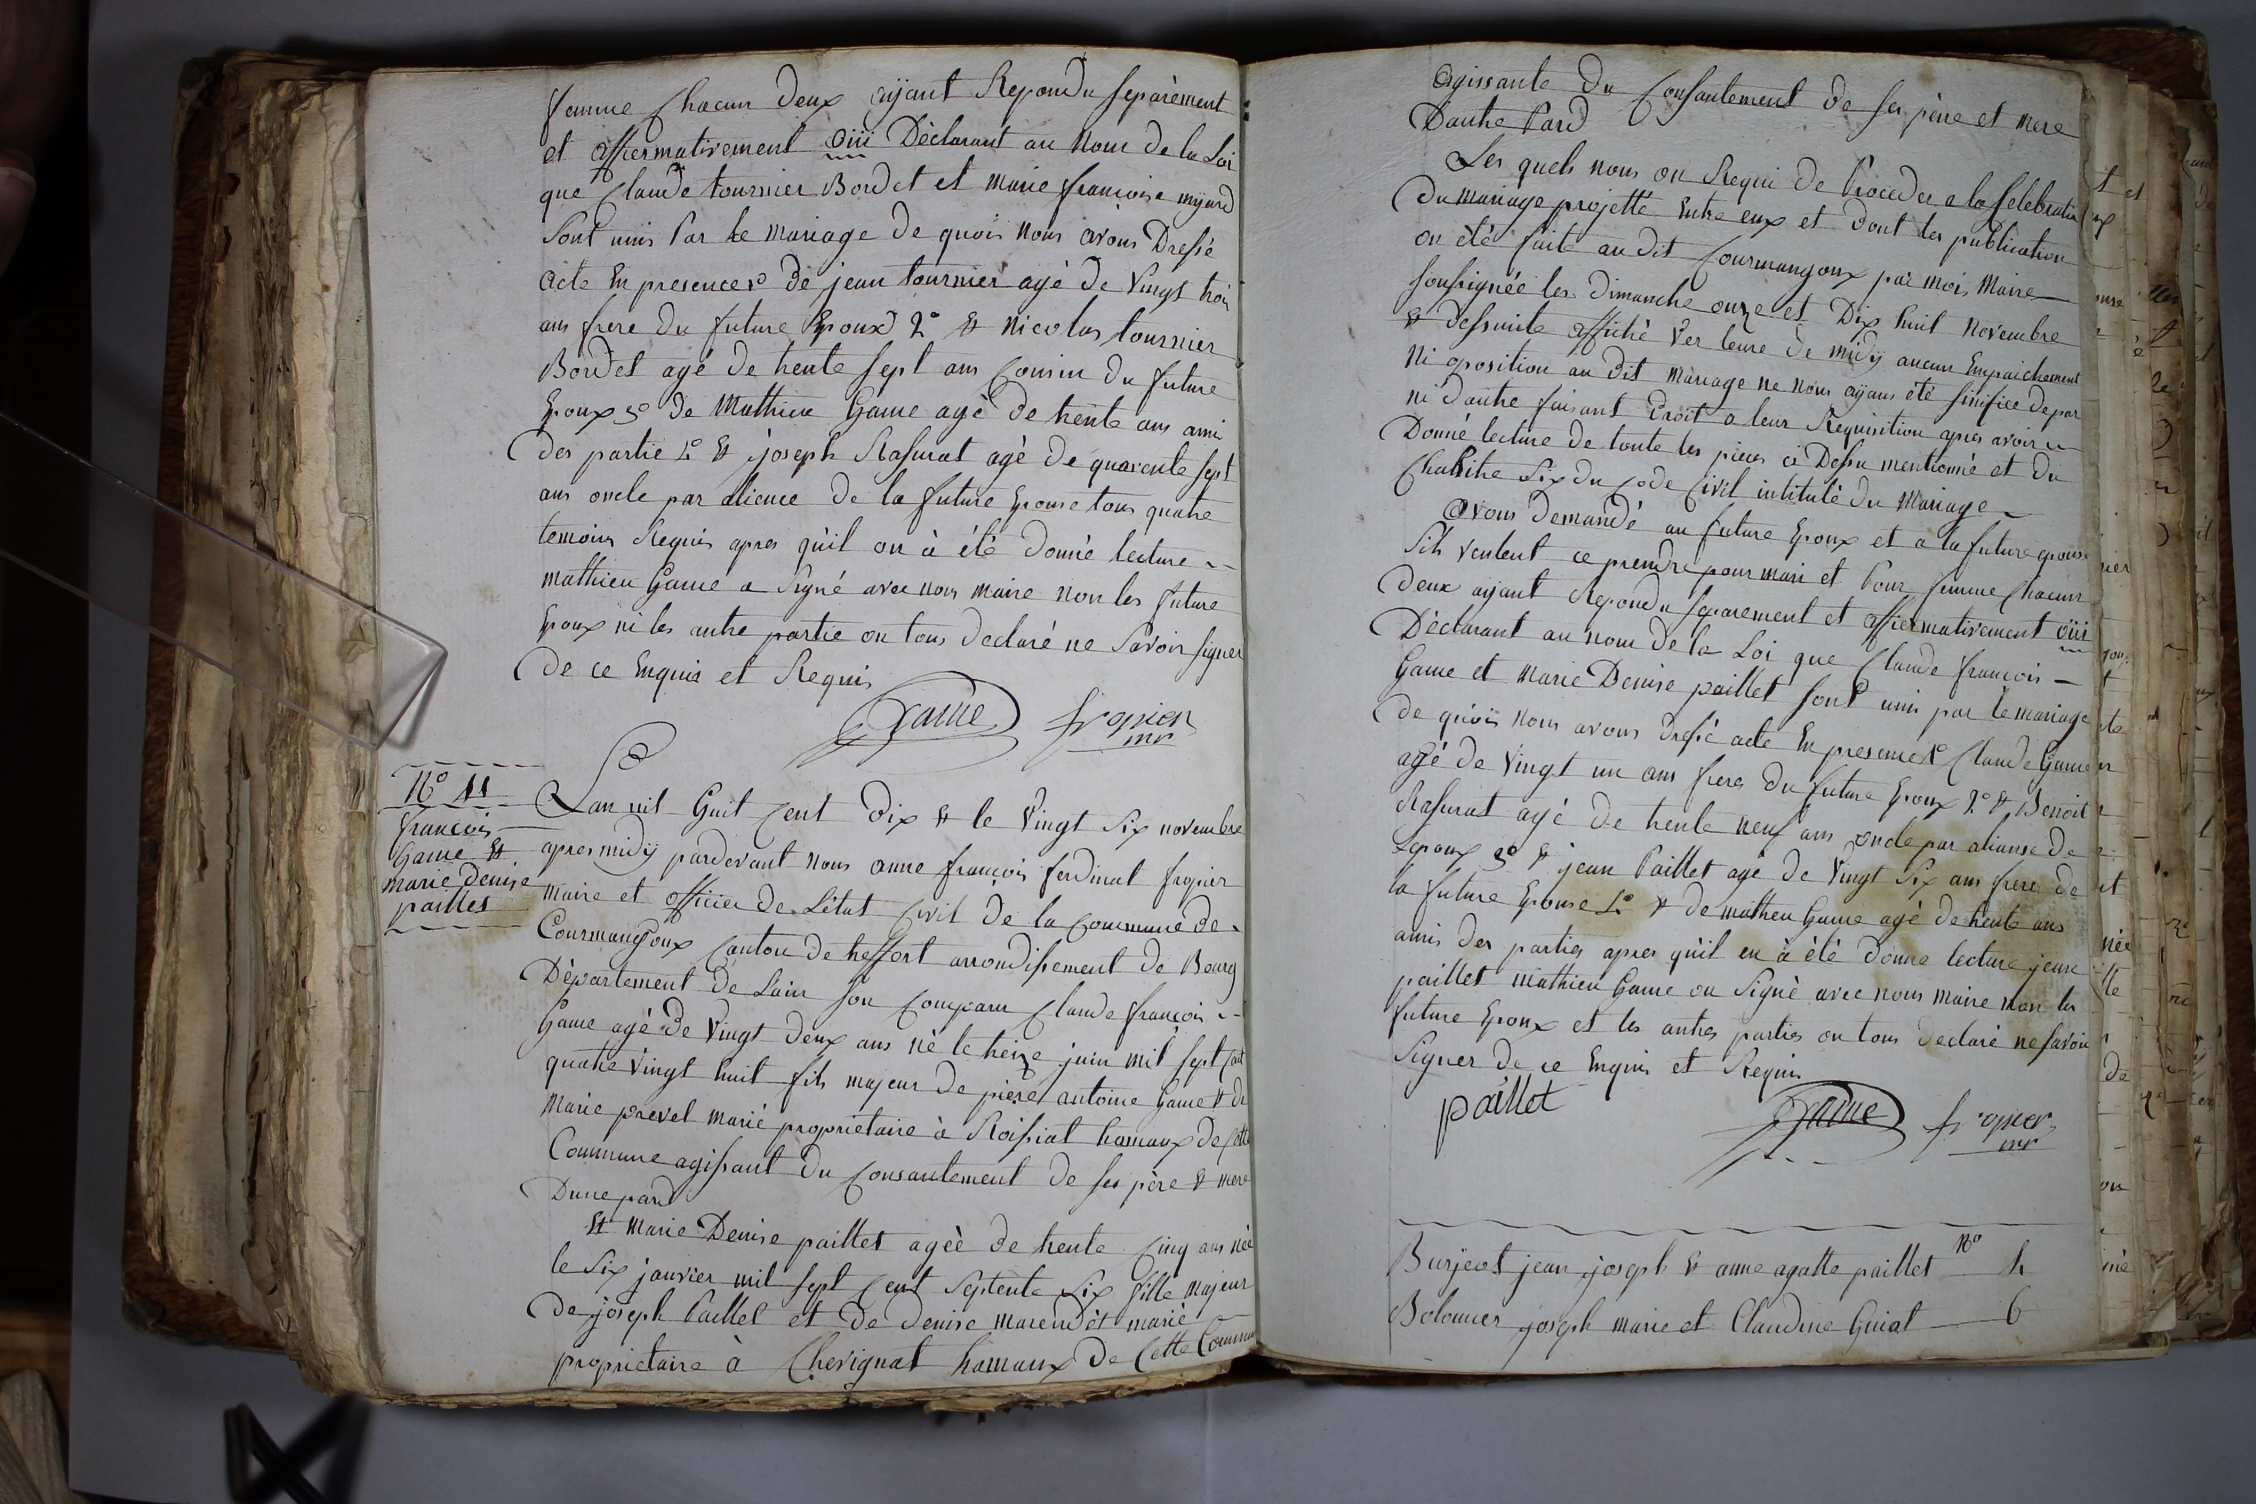 famme Chacun deux aÿant Repondu separèment
et affiermativement oüi Dèclarant au nom de la Loi
que Claude tournier Bordet et marie francoise myard
sont unis Par le mariage de quoi nous avons Dressé
acte En presence 1º de jean tournier agé de Vingt trois
ans frere du future Epoux 2º & nicolas tournier
Bordet agé de trente sept ans Cousin du future
Epoux 3º de Mathieu Game agé de trente ans ami
des partie 4º & joseph Rasurat agè de quarente sept
ans oncle par alience de la future Epouse tous quatre
temoins Requis apres qùil on à été donnè lecture
mathieu Game a Signé avec nous maire non les future
Epoux ni les autre partie on tous declaré ne Savoir signer
de ce Enquis et Requis
Game fropier
mr
Nº 11
francois
Game &
marie denise
paillet
Lan mil huit Cent dix & le Vingt Six novembre
apres midÿ pardevant nous anne francois ferdinal fropier
maire et officier de Létat Civil de la Commune de
Courmangoux Canton de treffort arrondissement de Bourg
Département de Lain son Comparu Claude francois
Game agè de Vingt deux ans nè le treize juin mil sept Cent
quatre Vingt huit fils majeur de pierre antoine Game & de
Marie prevel marié proprietaire à Roissiat hamaux de Cette
Commune agissant du Consantement de ses père & mere
Dune pard
Et Marie Denise paillet agèe de trente Cinq ans née
le Six janvier mil sept Cent Septente Six fille majeur
de joseph Paillet et de denise marendet marié
proprietaire à Chevignat hamaux de Cette Commun
agissante du Consantement de ses pére et mere
Dautre Pard
Les quels nous on Requi de Procceder a la Celebration
du mariage projetté Entre eux et dont les publication
on été fait au dit Courmangoux par moi, Maire
soussignée les dimanche onze et Dix huit novembre
& dessuite affiché Ver leure de midÿ aucun Empaichement
ni oposition au dit mariage ne nous aÿans été sinifiée depar
ni dautre faisant droit a leur Requisition apres avoir
Donné lecture de toute les pieces ci Dessu mentionné et du
Chapitre Six du Code Civil intitulé du Mariage
avons demandé au future Epoux et a la future epouse
sils veulent ce prendre pour mari et Pour femme Chacun
deux aÿant Repondu separement et affiermativement oüi
Dèclarant au nom de la Loi que Claude francois
Game et marie Denise paillet sont unis par le mariage
de quoi nous avons dressé acte En presence 1º Claude Game
agé de Vingt un ans frere du future Epoux 2º & Benoit
Rasurat agé de trente neuf ans oncle par alianse de
Lepoux 3º & jean Paillet agé de Vingt Six ans frere de
la future Epouse 4º & de mathieu Game agè de trente ans
amis des parties apres qùil en à été donne lecture jean
paillet mathieu Game on Signè avec nous maire non les
future Epoux et les autres parties on tous declaré ne savoir
Signer de ce Enquis et Requis
paillet Game fropier
mr
Burjeot jean joseph & anne agatte paillet Nº 4
Bolomier joseph marie et Claudine Guiat 6